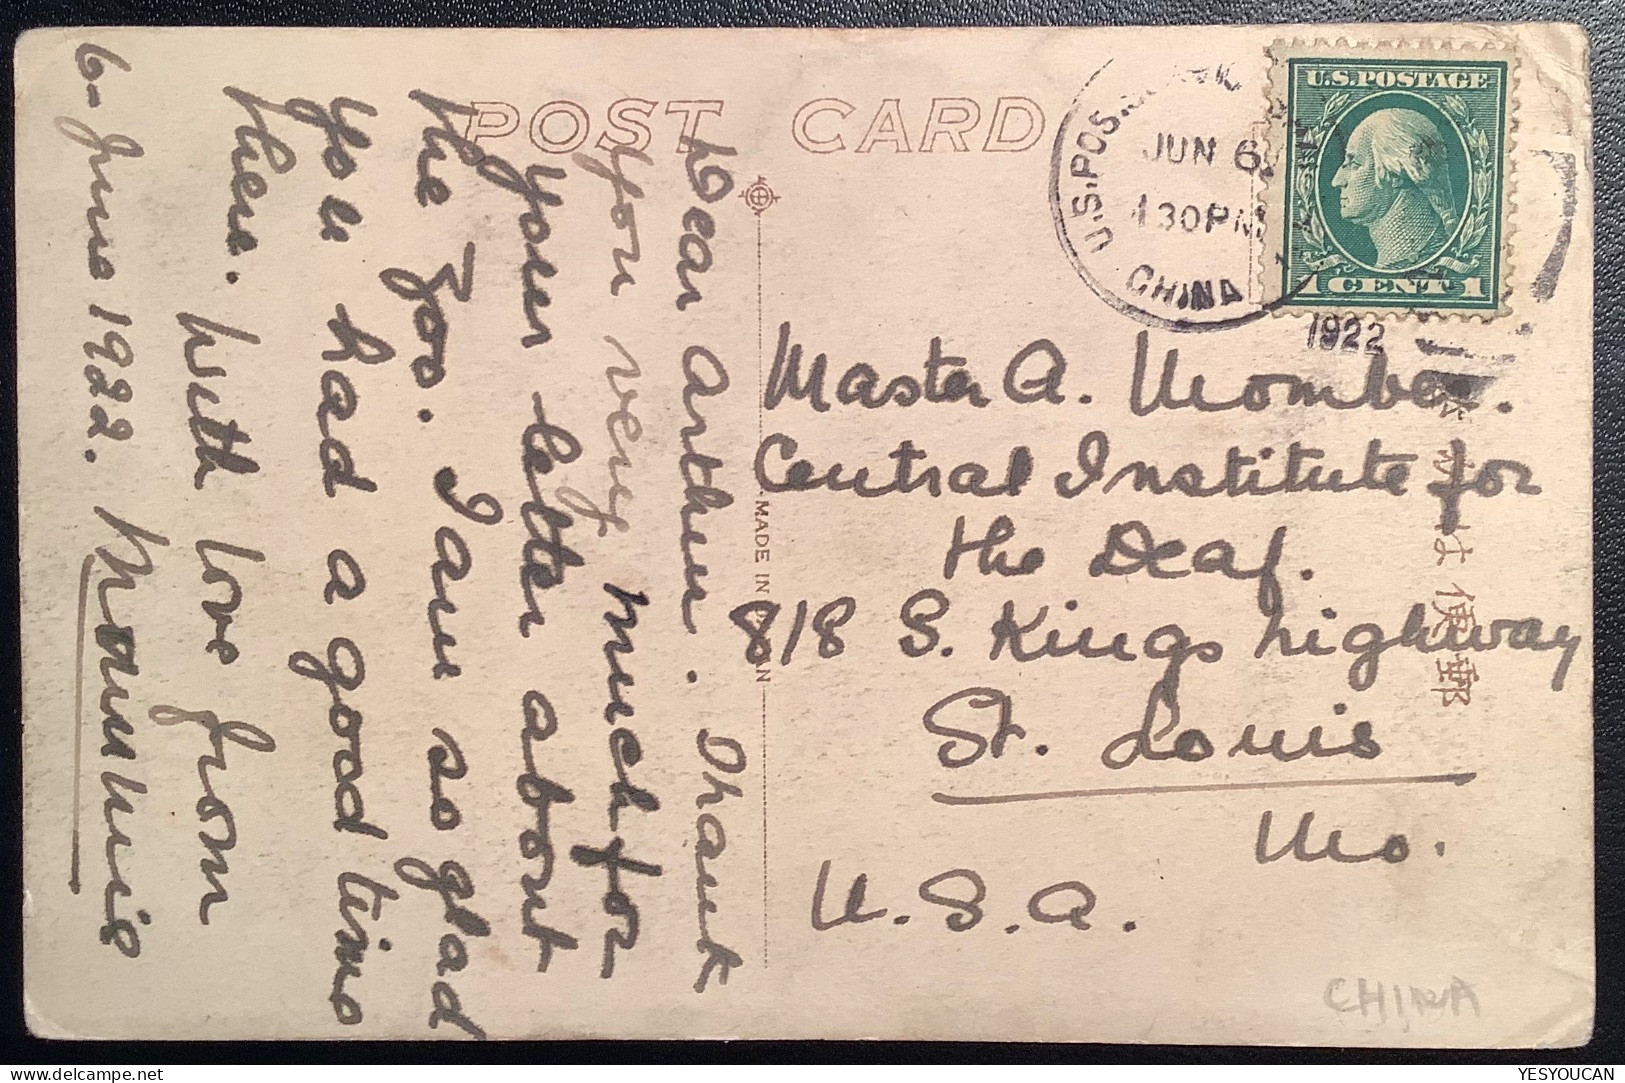 POST CARD
Dear Arthur. Thank
you very much for
your letter about
the Zoo. I am so glad
you had a good time
there. With love from
6- June 1922.
MADE IN JAPAN
JUN 6
30 PM
CHINA
1922
U.S. POSTAGE
1 CENT 1
Master A.
Central Institute for
the Deaf.
818 S. Kings highway
St. Louis
Mo.
U.S.A.
CHINA
YESYOUCAN